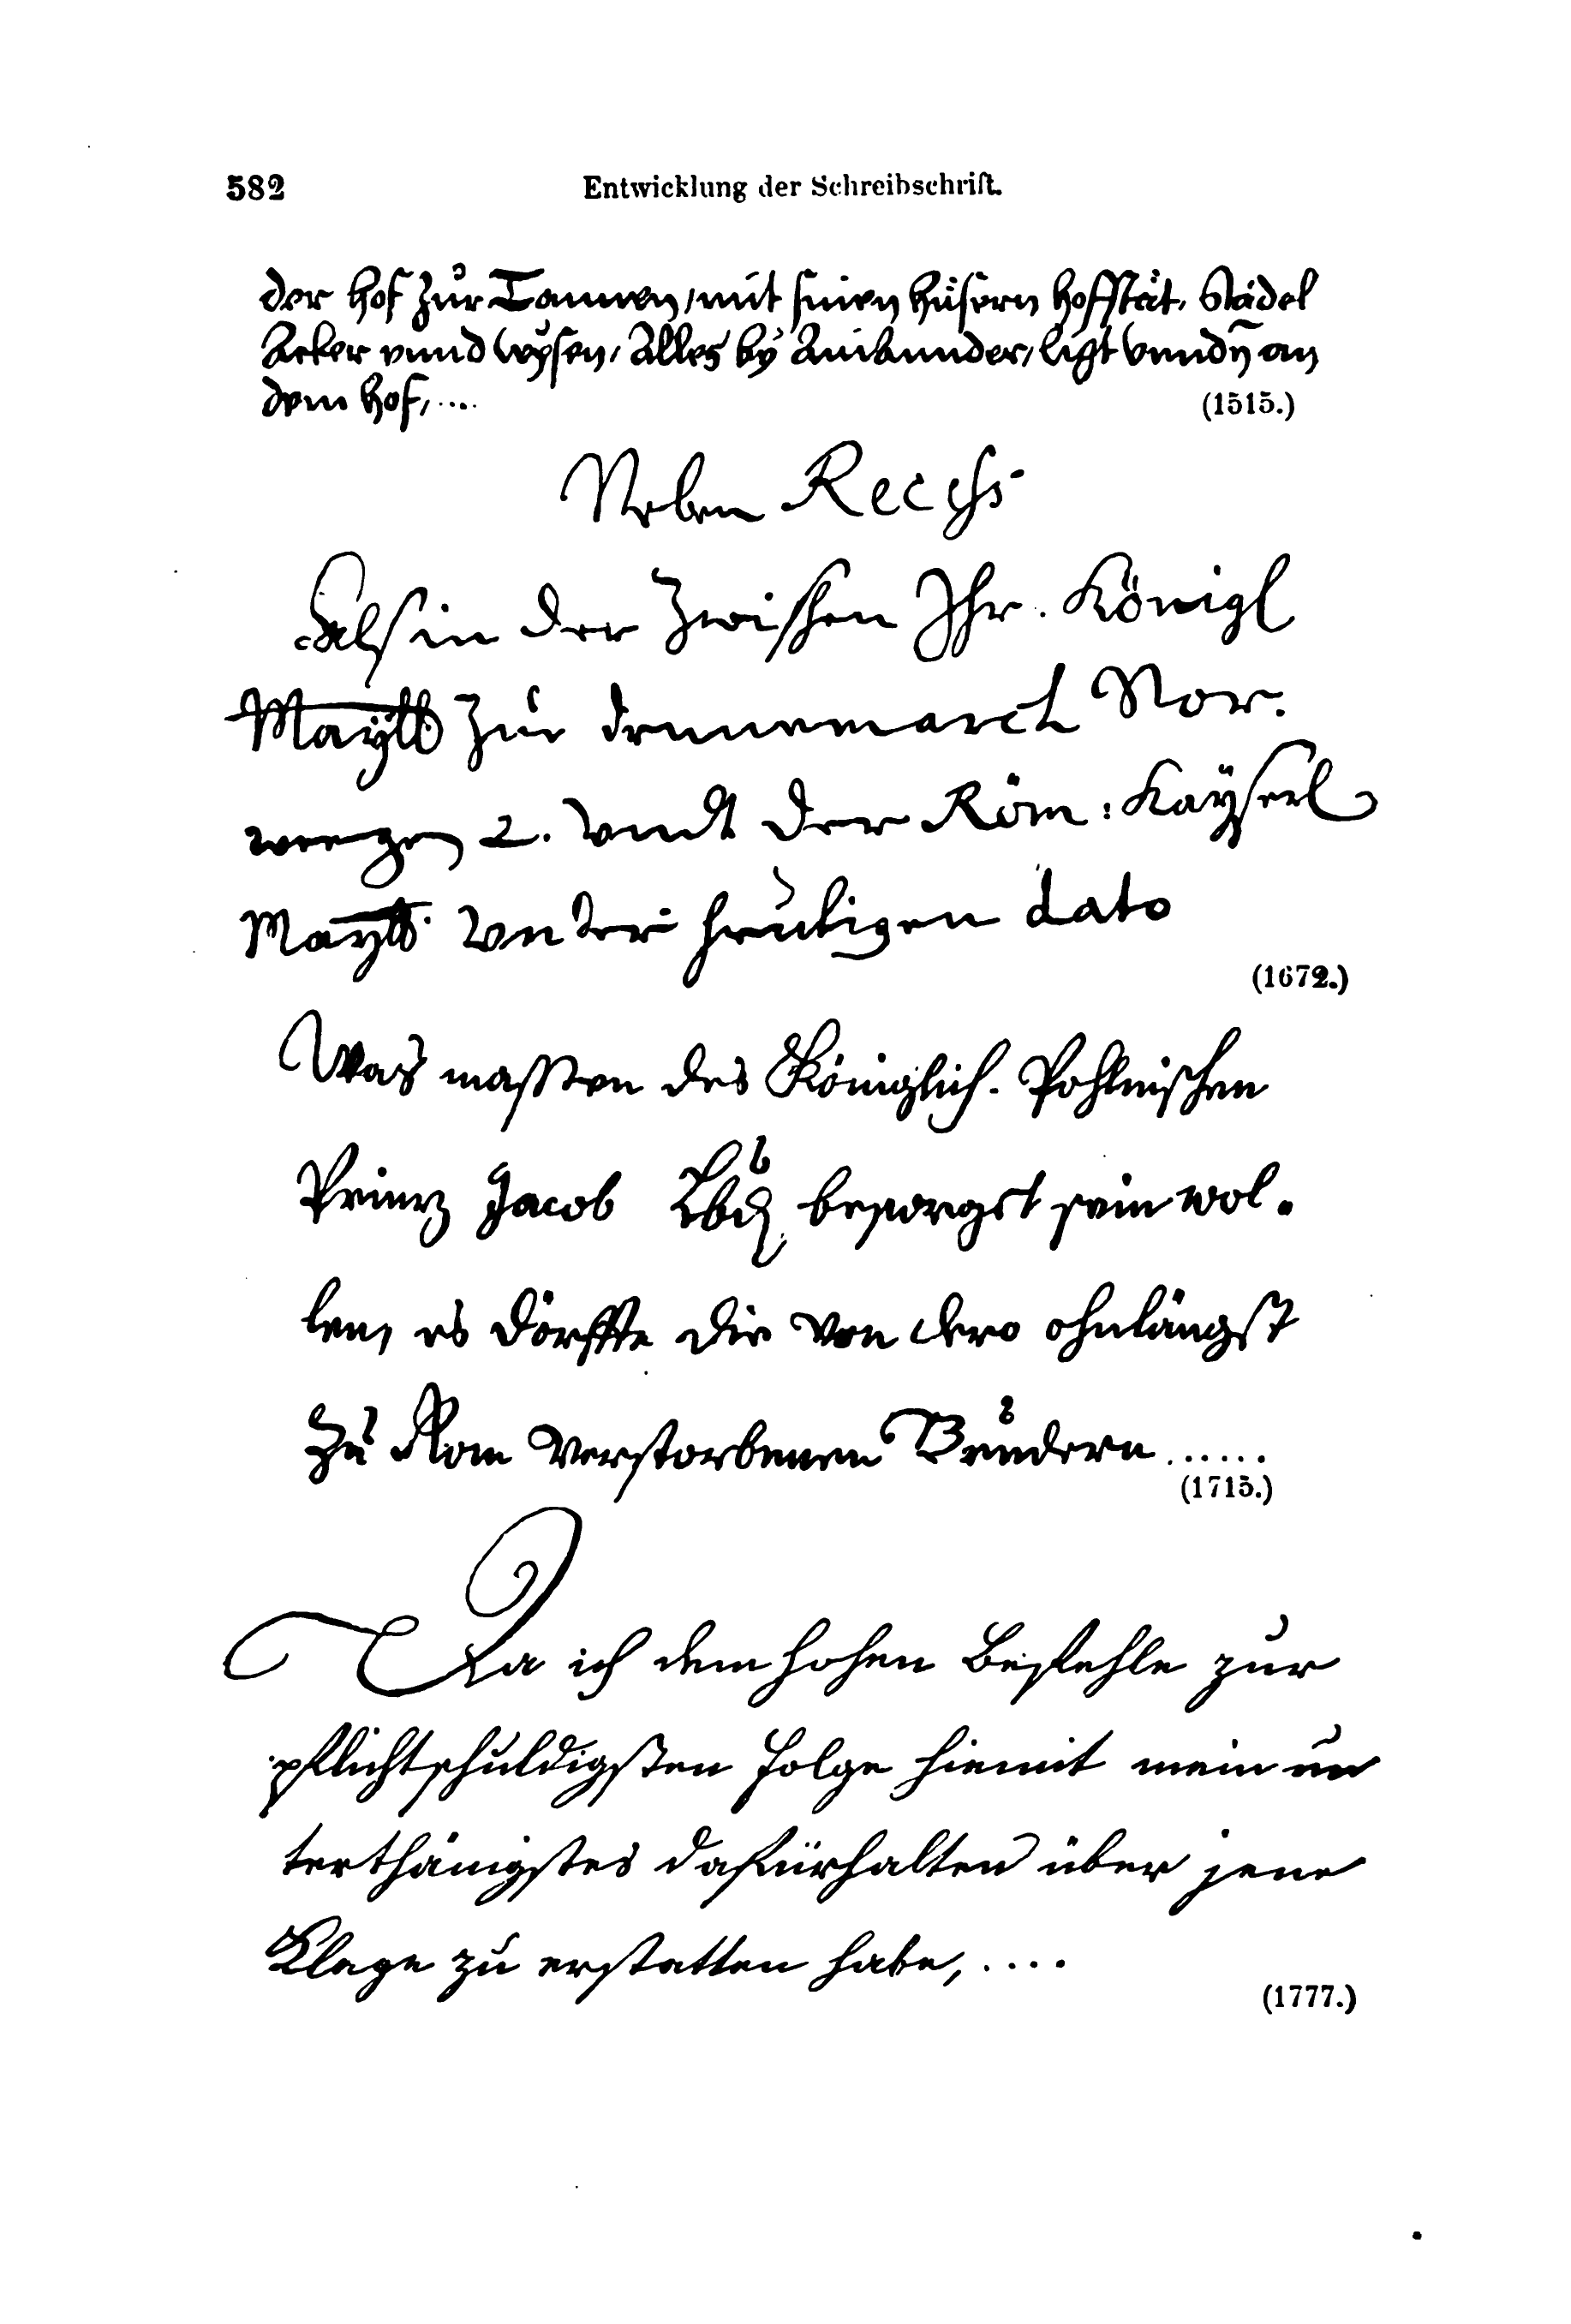 582 Entwicklung der Schreibschrift.
der hof zur Tannen, mit sinen hüsern hoffstät, Städel
Acker vnnd wysen, Alles by Ambunder, ligt vnndn an
dem hof, ....
(1515.)
Neben Recess
Als in der Zwischen Ihr. Königl
Maytt zur dennemarck Nor.
wegen 2. vndt der Röm: Kayserl
Maytt vnter heutigen dato
(1672.)
Was massen des Königlich. Pohlnischen
Prinz Jacob Lbd besorget sein wol.
len, es dörffte die von dero ohnlängst
zu Rom verstorbenen Brüdern ......
(1715.)
Da ich dem hohen Befehle zur
pflichtschuldigsten folge hiemit mein un
terthänigstes dafürhalten über jene
Klage zu erstatten habe, ....
(1777.)